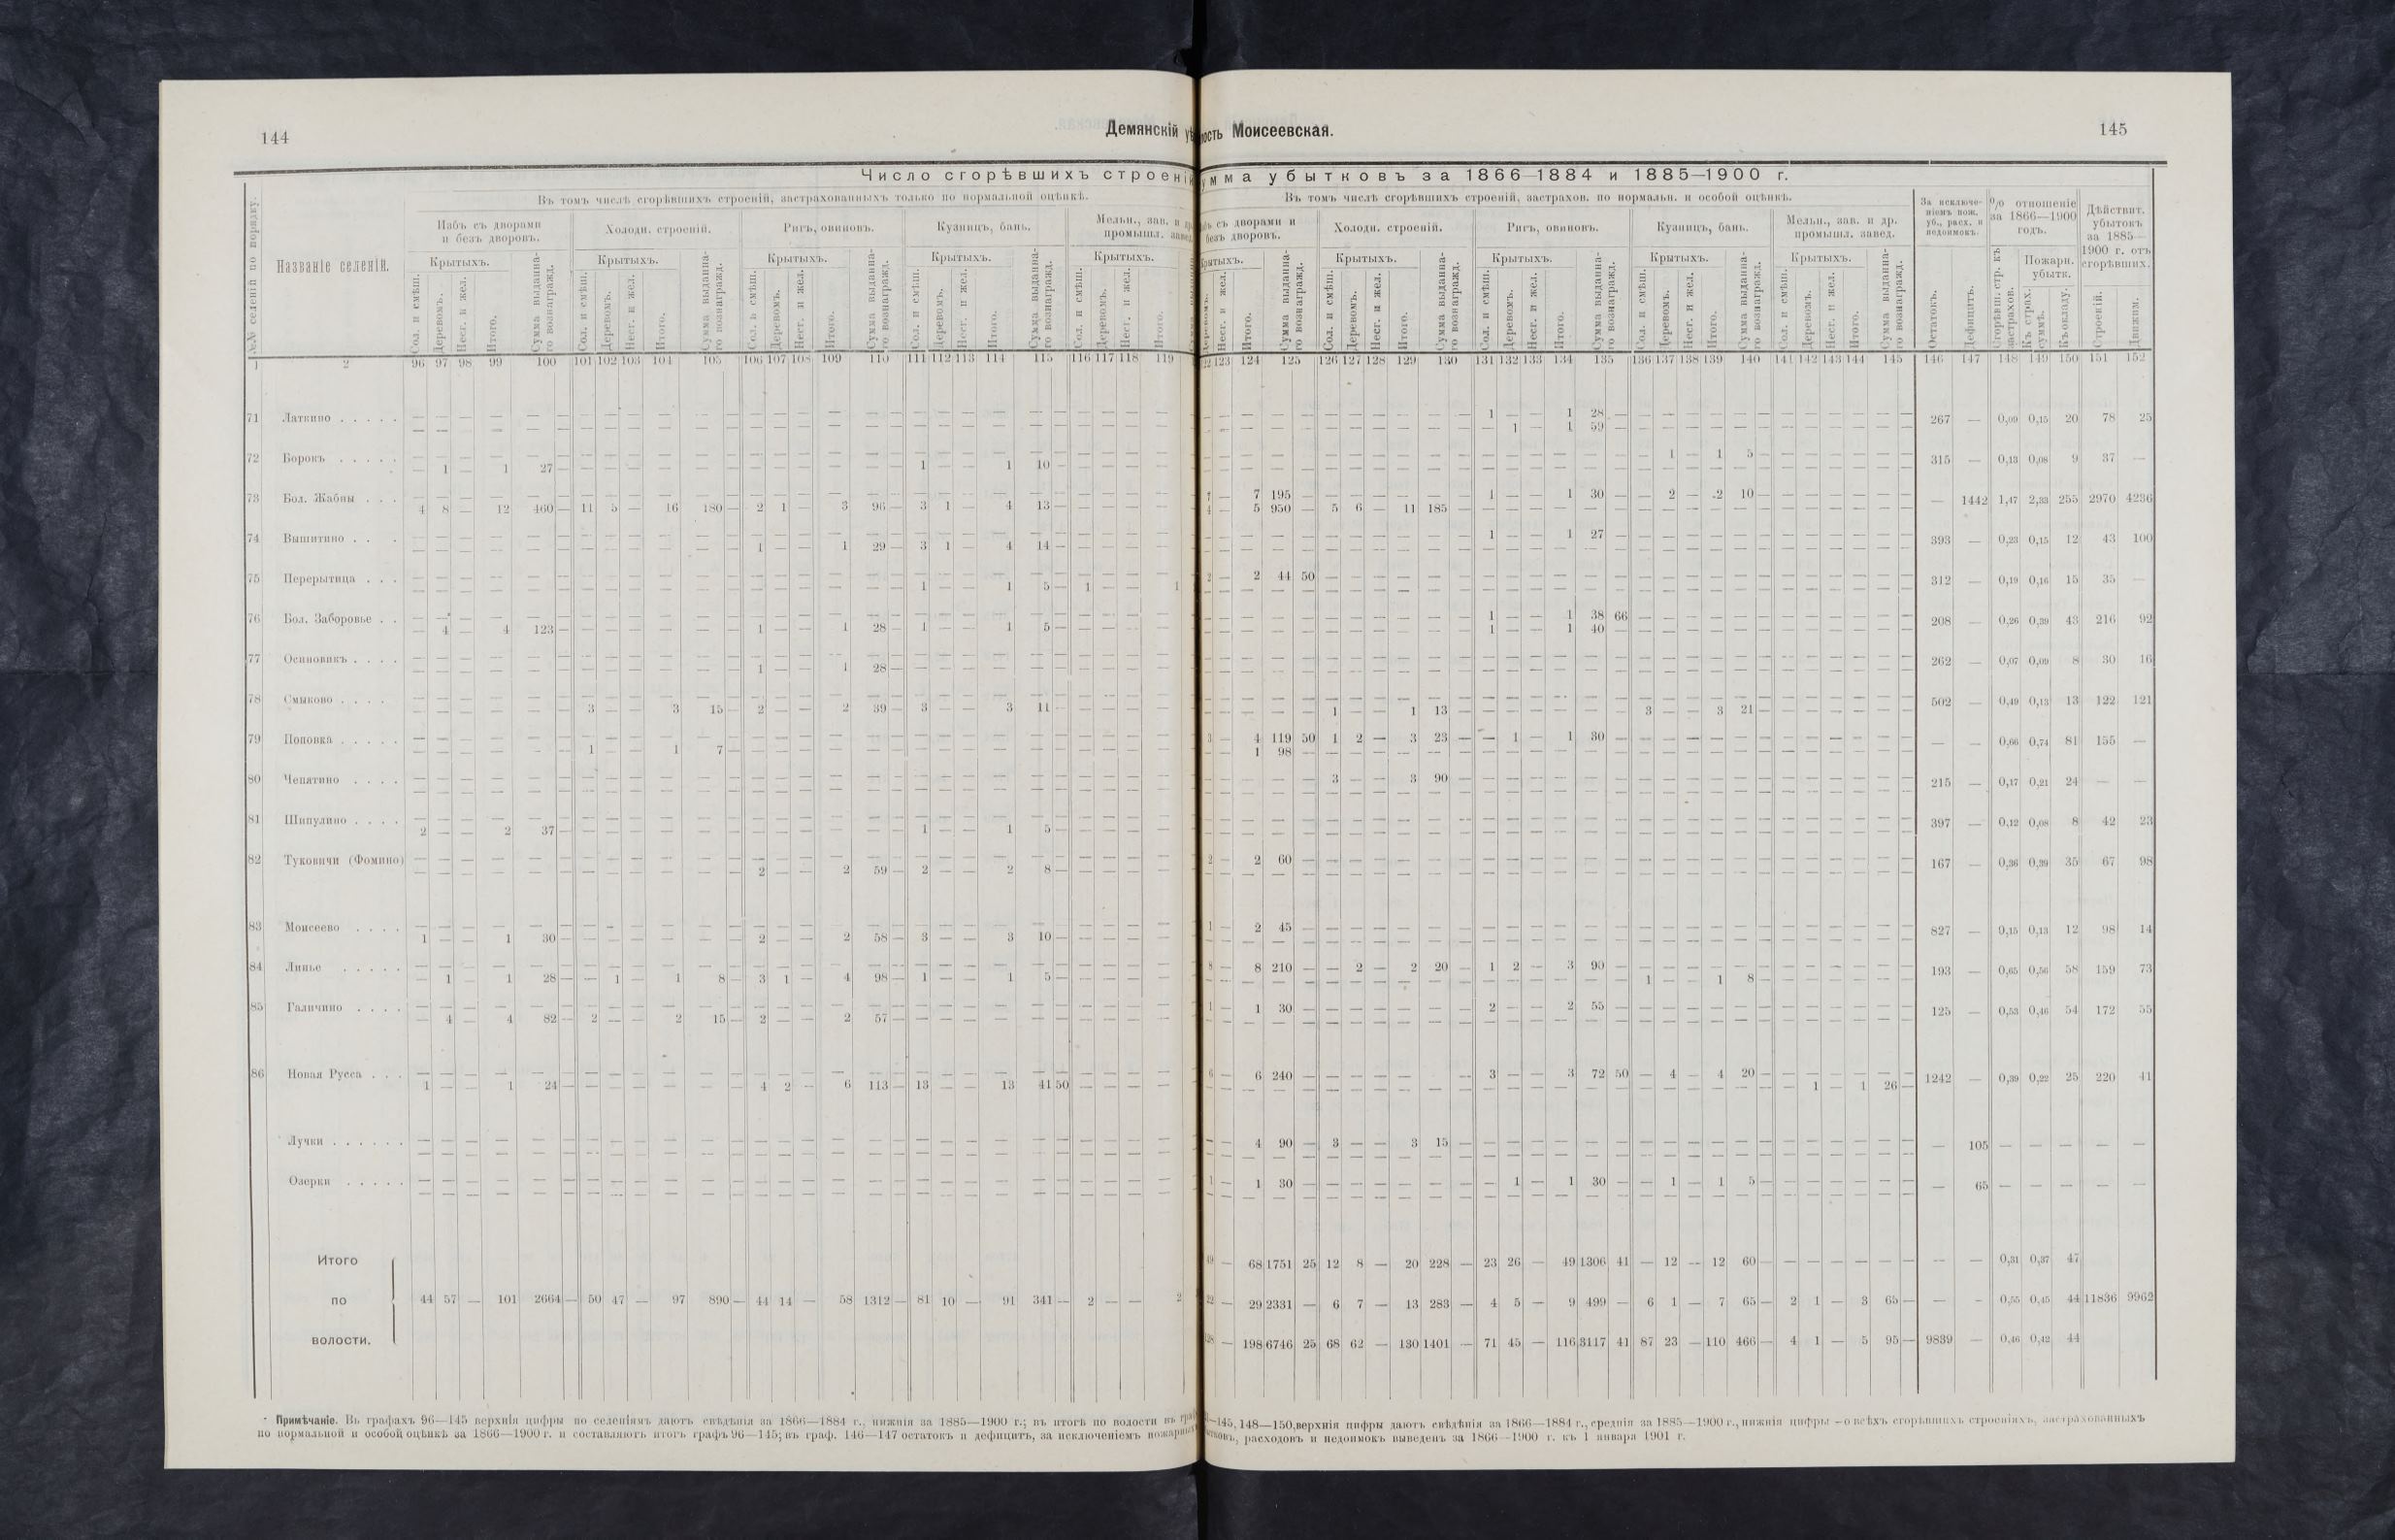 144
Демянскій
ость Моисеевская.
145
Число сгорѣвшихъ строеній
умма убытковъ за 1866—1884 и 1885—1900 г.
Въ томъ числѣ сгорѣвшихъ строеній, застрахованныхъ только по нормальной оцѣнкѣ.
Въ томъ числѣ сгорѣвшихъ строеній, застрахов. по нормальн. и особой оцѣнкѣ.
№№ селеній по порядку.
Названіе селеній.
Избъ съ дворами и безъ дворовъ.
Холодн. строеній.
Ригъ, овиновъ.
Кузницъ, бань.
Мельн., зав. и др. промышл. завед.
съ дворами и безъ дворовъ.
Холодн. строеній.
Ригъ, овиновъ.
Кузницъ, бань.
Мельн., зав. и др. промышл. завед.
За исключеніемъ пож. уб., расх. и недоимокъ.
% отношеніе за 1866—1900 годъ.
Дѣйствит. убытокъ за 1885—1900 г. отъ сгорѣвших.
Крытыхъ. Сол. и смѣш. Деревомъ. Несг. и жел. Итого. Сумма выданнаго вознагражд.
Остатокъ. Дефицитъ. Сгорѣвш. стр. къ застрахов. Пожарн. убытк. Къ страх. суммѣ. Къ окладу. Строеній. Движим.
1 2 96 97 98 99 100 101 102 103 104 105 106 107 108 109 110 111 112 113 114 115 116 117 118 119
123 124 125 126 127 128 129 130 131 132 133 134 135 136 137 138 139 140 141 142 143 144 145 146 147 148 149 150 151 152
71 Латкино . . . . . — 1 — — 1 28 — 267 — 0,09 0,15 20 78 25
— 1 — 1 59 —
72 Борокъ . . . . . — 1 — 1 5 — 315 — 0,13 0,08 9 37 —
— 1 — 1 27 — 1 — — 1 10 —
73 Бол. Жабны . . . — 7 — 7 195 — 1 — — 1 30 — — 2 — 2 10 — — 1442 1,47 2,33 255 2970 4236
4 8 — 12 460 — 11 5 — 16 180 — 2 1 — 3 96 — 3 1 — 4 13 — 4 — 5 950 — 5 6 — 11 185 —
74 Вышитино . . . — 1 — — 1 27 — 393 — 0,23 0,15 12 43 100
— 1 — — 1 29 — 3 1 — 4 14 —
75 Перерытица . . . — 2 — 2 44 50 — 312 — 0,19 0,16 15 35 —
— 1 — — 1 5 — 1 — — 1
76 Бол. Заборовье . . — 1 — — 1 38 66 — 208 — 0,26 0,39 43 216 92
— 4 — 4 123 — 1 — — 1 28 — 1 — — 1 5 — 1 — — 1 40 —
77 Осиновикъ . . . . — 262 — 0,07 0,09 8 30 16
— 1 — — 1 28 —
78 Смыково . . . . — 502 — 0,49 0,13 13 122 121
— 3 — — 3 15 — 2 — — 2 39 — 3 — — 3 11 — 1 — — 1 13 — 3 — — 3 21 —
79 Поповка . . . . . — 3 — 4 119 50 1 2 — 3 23 — — 1 — 1 30 — — — 0,66 0,74 81 155 —
— 1 — — 1 7 — 1 98 —
80 Чепятино . . . . — 3 — — 3 90 — 215 — 0,17 0,21 24 — —
81 Шипулино . . . . — 397 — 0,12 0,08 8 42 23
2 — — 2 37 — 1 — — 1 5 —
82 Туковичи (Фомино) — 2 — 2 60 — 167 — 0,36 0,39 35 67 98
— 2 — — 2 59 — 2 — — 2 8 —
83 Моисеево . . . . — 1 — 2 45 — 827 — 0,15 0,13 12 98 14
1 — — 1 30 — 2 — — 2 58 — 3 — — 3 10 —
84 Линье . . . . . — 8 — 8 210 — — 2 — 2 20 — 1 2 — 3 90 — 193 — 0,65 0,56 58 159 73
— 1 — 1 28 — — 1 — 1 8 — 3 1 — 4 98 — 1 — — 1 5 — 1 — — 1 8 —
85 Галичино . . . . — 1 — 1 30 — 2 — — 2 55 — 125 — 0,53 0,46 54 172 55
— 4 — 4 82 — 2 — — 2 15 — 2 — — 2 57 —
86 Новая Русса . . . — 6 — 6 240 — 3 — — 3 72 50 — 4 — 4 20 — 1242 — 0,39 0,22 25 220 41
1 — — 1 24 — 4 2 — 6 113 — 13 — — 13 41 50 — 1 — 1 26 —
Лучки . . . . . . — 4 90 — 3 — — 3 15 — — 105 — — — — —
Озерки . . . . . — 1 — 1 30 — — 1 — 1 30 — — 1 — 1 5 — — 65 — — — — —
Итого — 68 1751 25 12 8 — 20 228 — 23 26 — 49 1306 41 — 12 — 12 60 — — — — — — — — 0,31 0,37 47
по 44 57 — 101 2664 — 50 47 — 97 890 — 44 14 — 58 1312 — 81 10 — 91 341 — 2 — — 2 22 — 29 2331 — 6 7 — 13 283 — 4 5 — 9 499 — 6 1 — 7 65 — 2 1 — 3 65 — — — 0,55 0,45 44 11836 9962
волости. — 198 6746 25 68 62 — 130 1401 — 71 45 — 116 3117 41 87 23 — 110 466 — 4 1 — 5 95 — 9839 — 0,46 0,42 44
Примѣчаніе. Въ графахъ 96—145 верхнія цифры по селеніямъ даютъ свѣдѣнія за 1866—1884 г., нижнія за 1885—1900 г.; въ итогѣ по волости въ —145, 148—150, верхнія цифры даютъ свѣдѣнія за 1866—1884 г., среднія за 1885—1900 г., нижнія цифры —о всѣхъ сгорѣвшихъ строеніяхъ, застрахованныхъ
по нормальной и особой оцѣнкѣ за 1866—1900 г. и составляютъ итогъ графъ 96—145; въ граф. 146—147 остатокъ и дефицитъ, за исключеніемъ пожарныхъ расходовъ и недоимокъ выведенъ за 1866—1900 г. къ 1 января 1901 г.